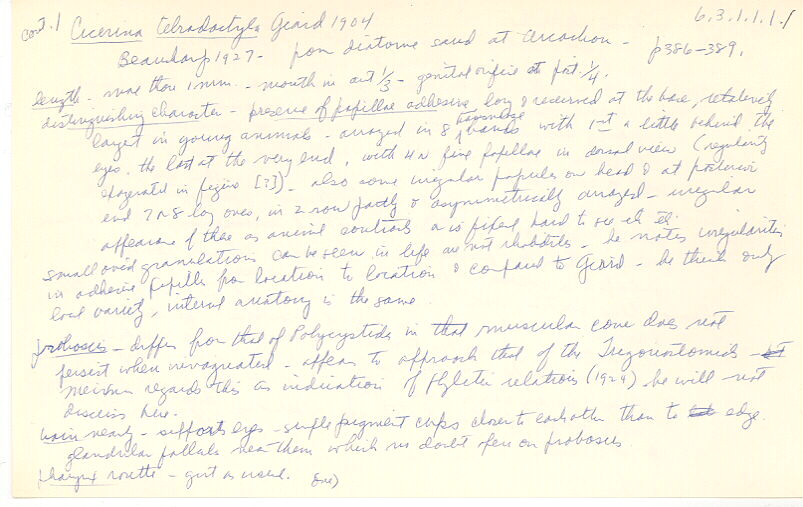 6.3.1.1.1./
cont. 1 Cicerina tetradactyla Giard 1904
Beauchamp 1927 - from diatome sand at Arcachon - p386-389.
length - more than 1 mm. - mouth in ant 1/3 - genital orifice at post. 1/4.
distinguishing character - presence of papillae adhesive long & recurved at the base, relatively
largest in young animals - arranged in 8 transverse bands with 1st a little behind the
eyes, the last at the very end, with 4 or five papillae in dorsal view (regularity
exagerated in figure [?]) - also some irregular papules on head & at posterior
end 7 or 8 long ones, in 2 rows partly & asymmetrically arranged - irregular
appearance of these as animal contracts or is fixed hard to see etc etc.
small ovoid granulations can be seen in life are not rhabdites - he notes irregularities
in adhesive papillae from location to location & compared to Giard - he thinks only
local variety, internal anatomy is the same.
proboscis - differs from that of Polycystids in that muscular cone does not
persist when invaginated - appears to approach that of the Trigonostomids -
Meixner regards this as indication of phyletic relations (1924) he will not
discuss here.
brain nearly - supports eyes - simple pigment cups closer to each other than to edge.
glandular follicles near them which no doubt open on proboscis.
pharynx rosette - gut as usual. over)